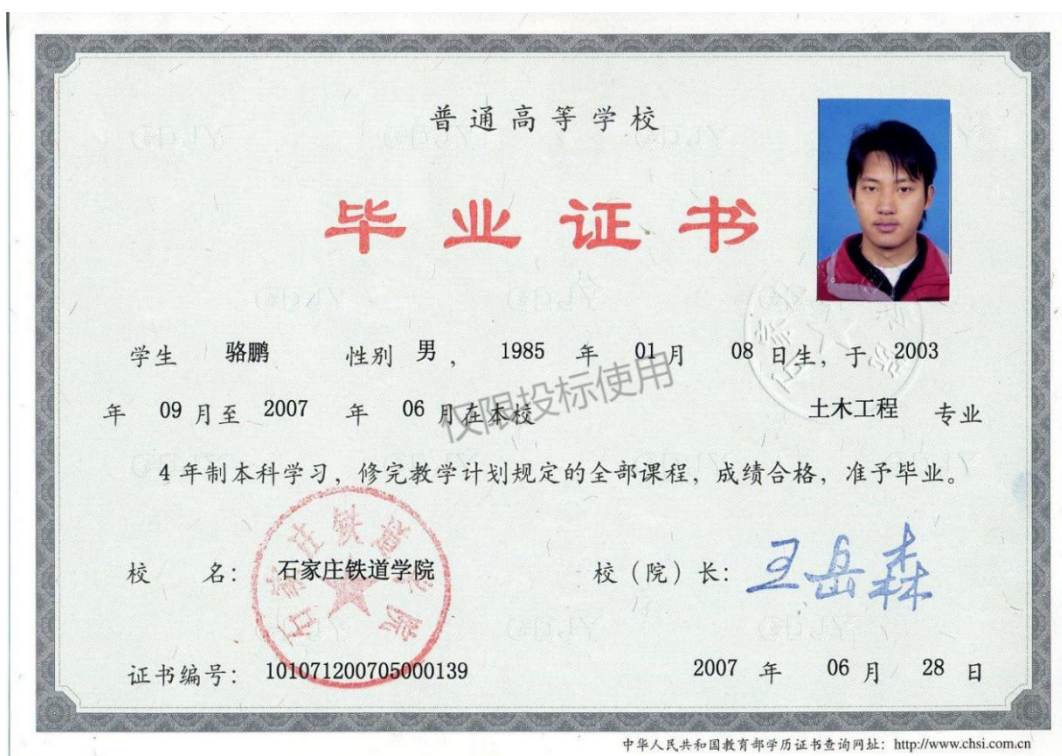 普通高等学校
毕业证书
学生 骆鹏 性别 男, 1985 年 01 月 08 日生, 于 2003
年 09 月至 2007 年 06 月在本校 土木工程 专业
仅限投标使用
4 年制本科学习, 修完教学计划规定的全部课程, 成绩合格, 准予毕业。
石家庄铁道学院
校 名: 石家庄铁道学院 校(院)长: 王岳森
证书编号: 101071200705000139 2007 年 06 月 28 日
中华人民共和国教育部学历证书查询网址: http://www.chsi.com.cn